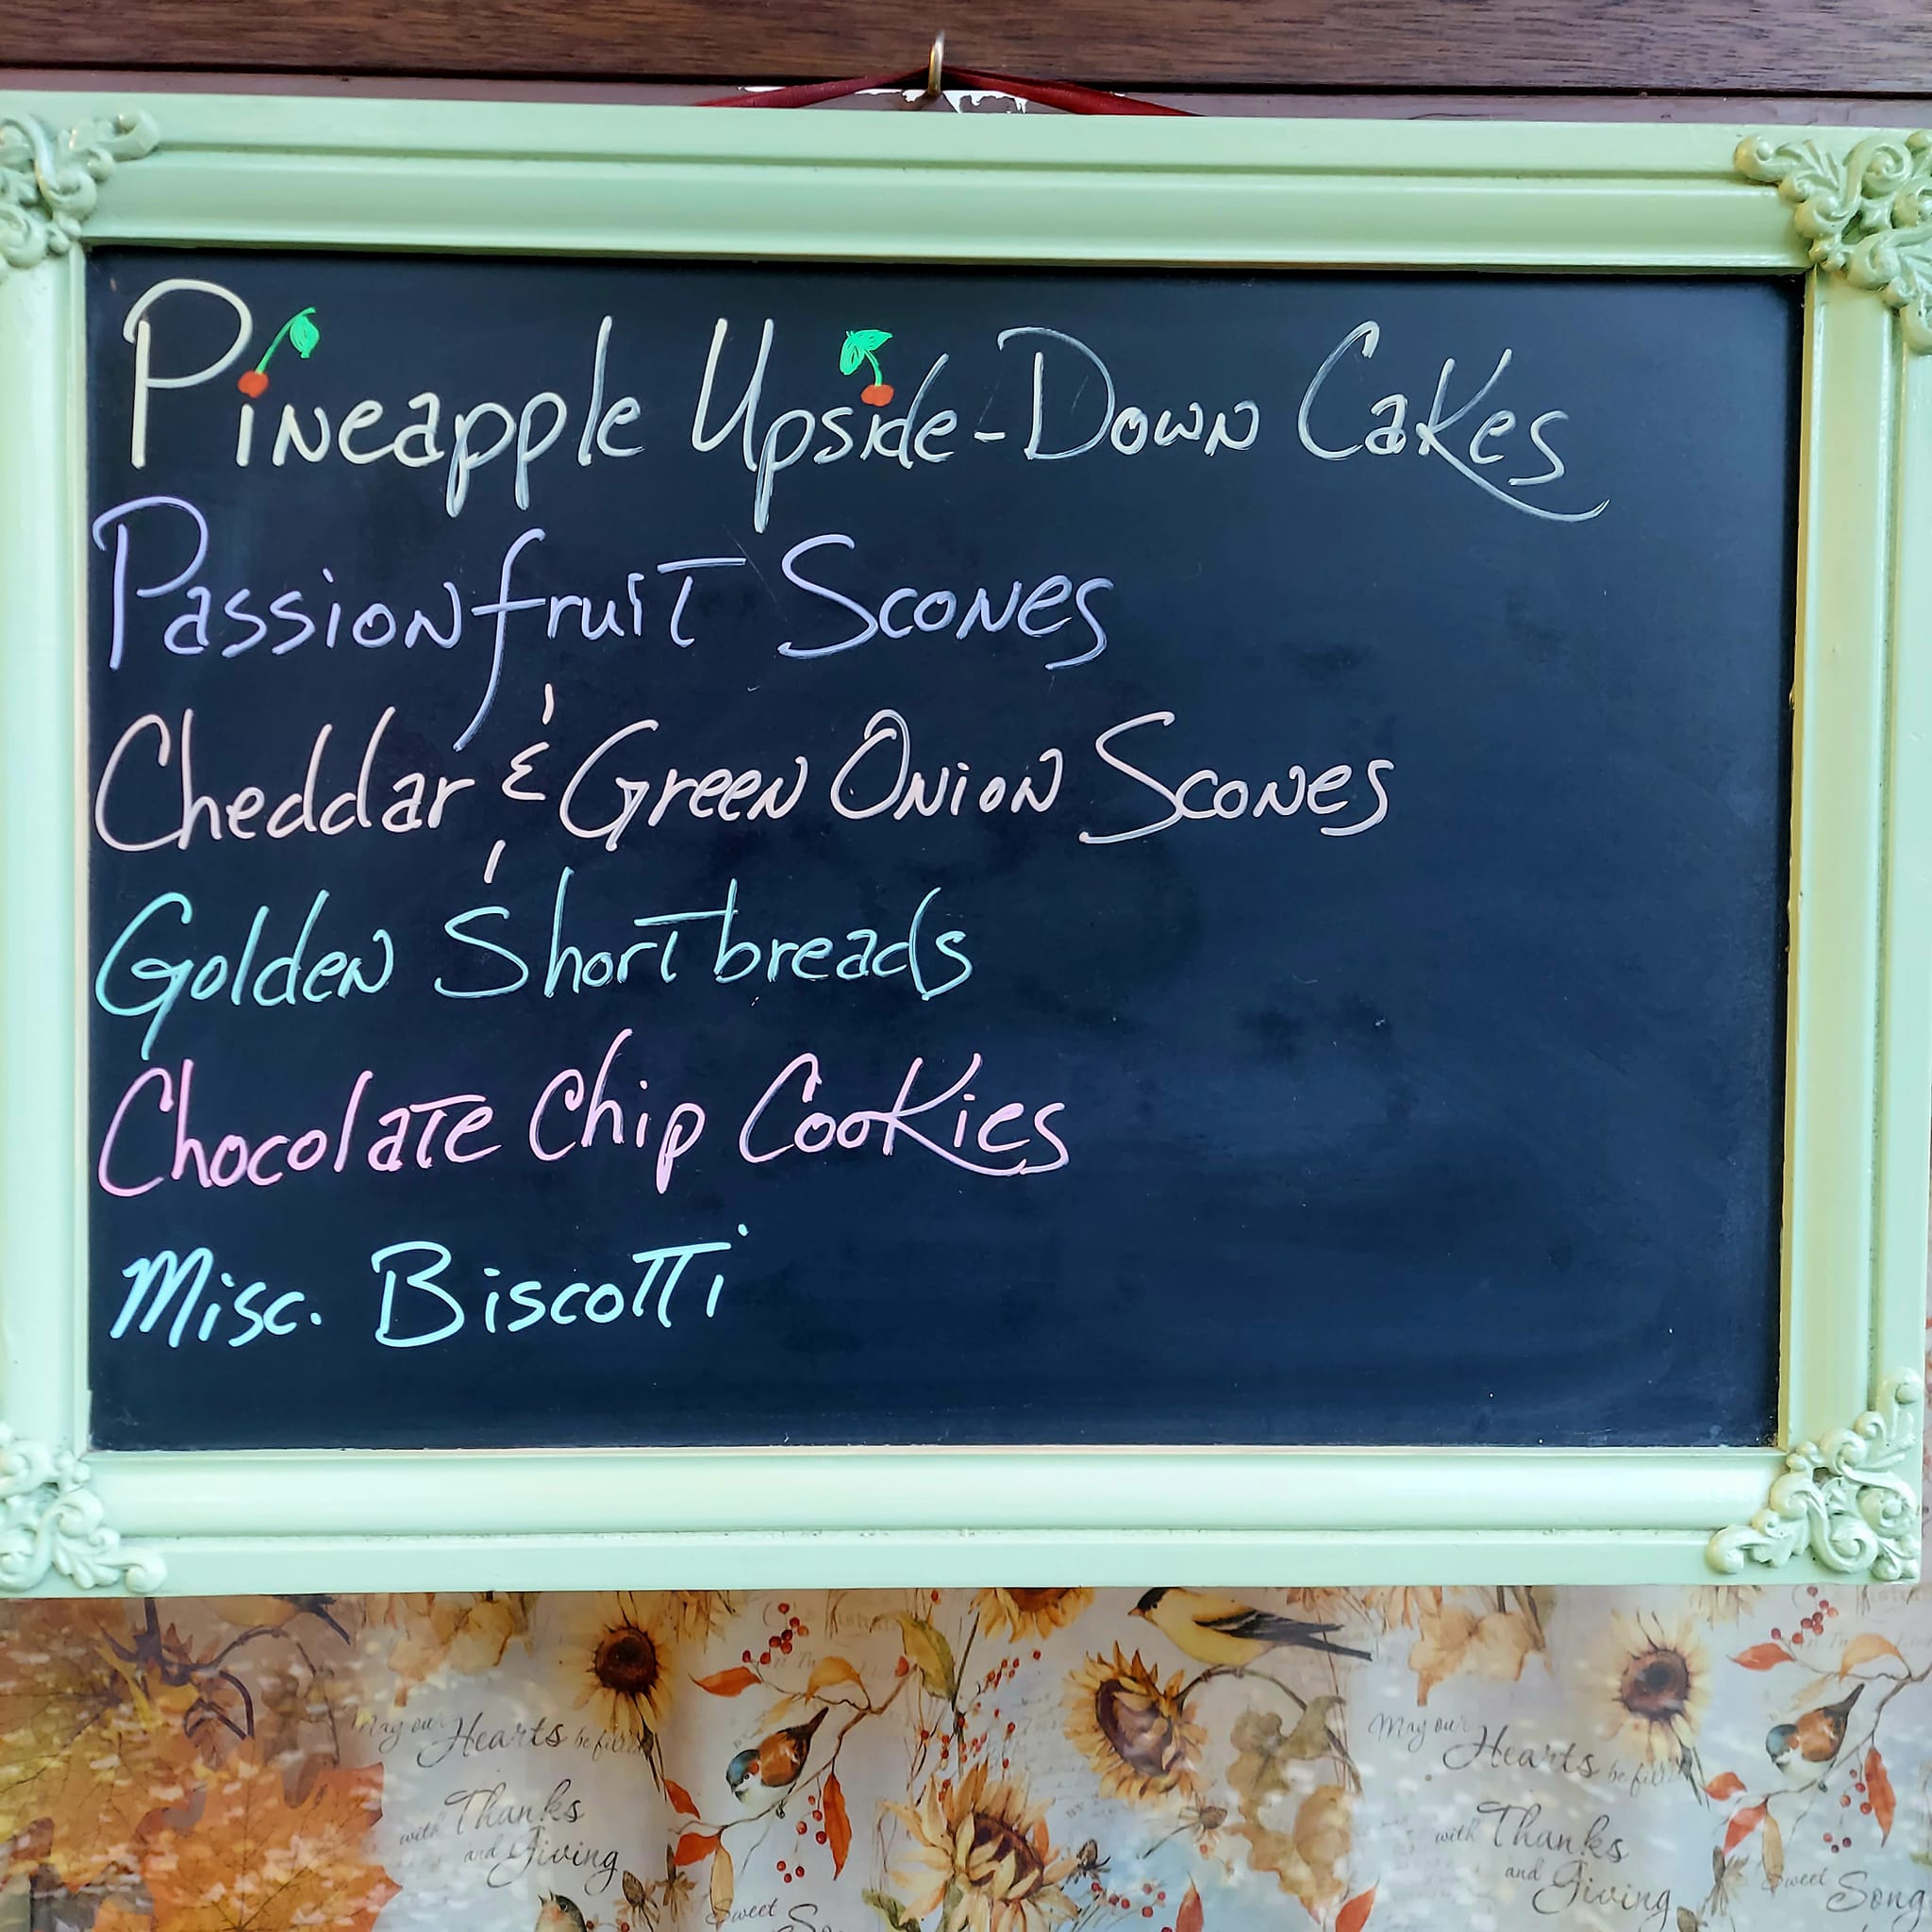 Pineapple Upside-Down Cakes
Passionfruit Scones
Cheddar & Green Onion Scones
Golden Shortbreads
Chocolate Chip Cookies
Misc. Biscotti
May our Hearts be filled
with Thanks
and Giving
Sweet
May our Hearts be filled
with Thanks
and Giving
Sweet Song